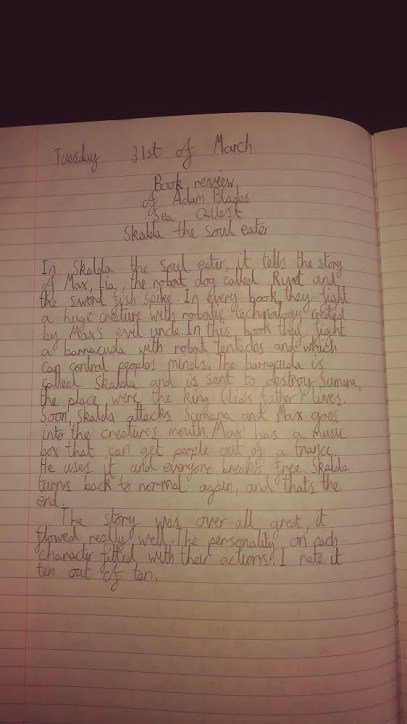 Tuesday 31st of March
Book review
of Adam Blades
Sea Quest
Skalda the soul eater
In Skalda the soul eater, it tells the story
of Max, Lia, the robot dog called Rivet and
the sword fish spike. In every book, they fight
a huge creature with robotic technology created
by Max's evil uncle. In this book they fight
a barracuda with robot tentacles and which
can control peoples minds. The barracuda is
called Skalda and is sent to destroy Sumara,
the place, were the king (Lia's father) lives.
Soon, Skalda attacks Sumara and Max goes
into the creatures mouth. Max has a music
box that can get people out of a trance.
He uses it and everyone breaks free. Skalda
turns back to normal again, and thats the
end.
The story was over all great, it
flowed really well. The personality on each
character fitted with their actions. I rate it
ten out of ten.